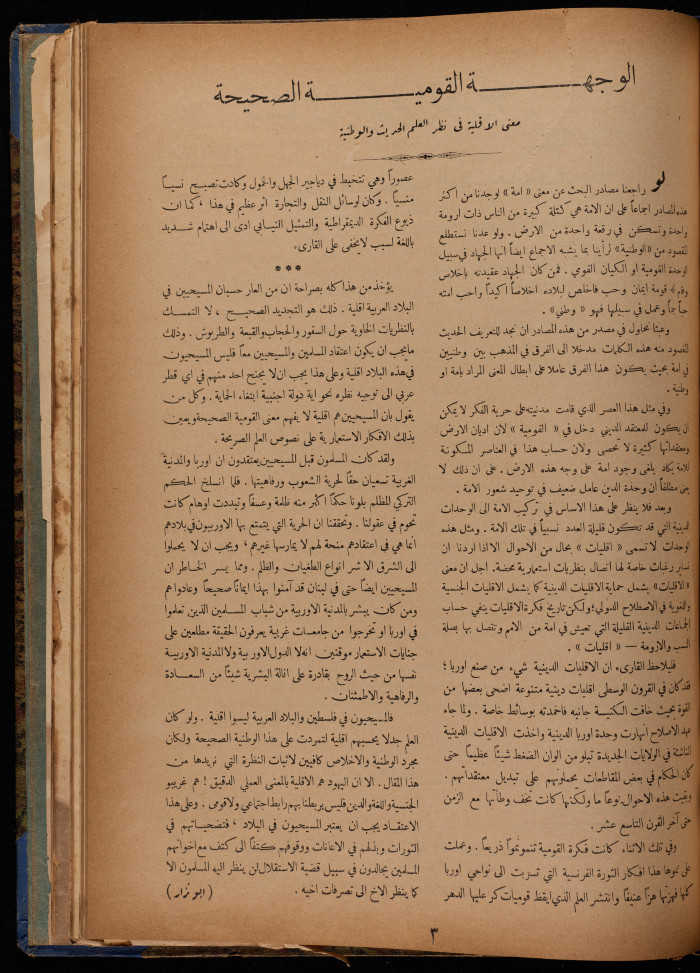 الوجهة القومية الصحيحة
معنى الاقلية في نظر العلم الحديث والوطنية
لو راجعنا مصادر البحث عن معنى « امة » لوجدنا من اكثر
هذه المصادر اجماعاً على ان الامة هي كتلة كبيرة من الناس ذات ارومة
واحدة وتسكن في رقعة واحدة من الارض . ولو عدنا نستطلع
المقصود من «الوطنية» لرأينا بما يشبه الاجماع ايضاً انها الجهاد في سبيل
الوحدة القومية او الكيان القومي . فمن كان الجهاد عقيدته باخلاص
وقام له قومة ايمان وحب فاخلص لبلاده اخلاصاً اكيداً واحب امته
حباً جماً وعمل في سبيلها فهو « وطني » .
وعبثا نحاول في مصدر من هذه المصادر ان نجد للتعريف الحديث
المقصود منه هذه الكلمات مدخلا الى الفرق في المذهب بين وطنيين
في امة بحيث يكون هذا الفرق عاملا على ابطال المعنى المراد بامة او
وطنية .
وفي مثل هذا العصر الذي قامت مدنيته على حرية الفكر لا يمكن
ان يكون للمعتقد الديني دخل في « القومية » لان اديان الارض
ومعتقداتها كثيرة لا تحصى ولان حساب هذا في العناصر المسكونة
للامة يكاد يلغي وجود امة على وجه هذه الارض . على ان ذلك لا
ينفى مطلقاً ان وحدة الدين عامل ضعيف في توحيد شعور الامة .
وبعد فلا ينظر على هذا الاساس في تركيب الامة الى الوحدات
الدينية التي قد تكون قليلة العدد نسبياً في تلك الامة . ومثل هذه
الوحدات لا تسمى « اقليات » بحال من الاحوال الا اذا اردنا ان
نساير رغبات خاصة لها اتصال بنظريات استعمارية محضة . اجل ان معنى
«الاقليات» يشمل حماية الاقليات الدينية كما يشمل الاقليات الجنسية
واللغوية في الاصطلاح الدولي؛ ولكن تاريخ فكرة الاقليات ينفي حساب
الجماعات الدينية القليلة التي تعيش في امة من الامم وتتصل بها بصلة
النسب والارومة — « اقليات » .
فليلاحظ القارىء ان الاقليات الدينية شيء من صنع اوربا ؛
فقد كان في القرون الوسطى اقليات دينية متنوعة اضحى بعضها من
القوة بحيث خافت الكنيسة جانبه فاخمدته بوسائط خاصة . ولما جاء
عهد الاصلاح انهارت وحدة اوربا الدينية واخذت الاقليات الدينية
الناشئة في الولايات الجديدة تبلو من الوان الضغط شيئاً عظيماً حتى
كان الحكام في بعض المقاطعات يحملونهم على تبديل معتقداتهم .
وبقيت هذه الاحوال نوعاً ما ولكنها كانت تخف وطأتها مع الزمن
حتى آخر القرن التاسع عشر .
وفي تلك الاثناء كانت فكرة القومية تنمو نمواً ذريعاً . وعملت
على نموها هذا افكار الثورة الفرنسية التي تسربت الى نواحي اوربا
كلها فهزتها هزاً عنيفاً وانتشر العلم الذي ايقظ قوميات كر عليها الدهر
عصوراً وهي تتخبط في دياجير الجهل والخمول وكادت تصبح نسياً
منسياً . وكان لوسائل النقل والتجارة اثر عظيم في هذا ، كما ان
ذيوع الفكرة الديمقراطية والتمثيل النيابي ادى الى اهتمام شديد
باللغة لسبب لا يخفى على القارىء .
***
يؤخذ من هذا كله بصراحة ان من العار حسبان المسيحيين في
البلاد العربية اقلية . ذلك هو التجديد الصحيح ، لا التمسك
بالنظريات الخاوية حول السفور والحجاب والقبعة والطربوش . وذلك
ما يجب ان يكون اعتقاد المسلمين والمسيحيين معاً فليس المسيحيون
في هذه البلاد اقلية وعلى هذا يجب ان لا يجنح احد منهم في اي قطر
عربي الى توجيه نظره نحو اية دولة اجنبية ابتغاء الحماية . وكل من
يقول بان المسيحيين هم اقلية لا يفهم معنى القومية الصحيحة ويعين
بذلك الافكار الاستعمارية على نصوص العلم الصريحة .
ولقد كان المسلمون قبل المسيحيين يعتقدون ان اوربا والمدنية
الغربية تسعيان حقاً لحرية الشعوب ورفاهيتها . فلما انسلخ الحكم
التركي المظلم بلونا حكماً اكثر منه ظلمة وعسفاً وتبددت اوهام كانت
تحوم في عقولنا . وتحققنا ان الحرية التي يتمتع بها الاوربيون في بلادهم
انما هي في اعتقادهم منحة لهم لا يمارسها غيرهم ، ويجب ان لا يحملوا
الى الشرق الا شر انواع الطغيان والظلم . ومما يسر الخاطر ان
المسيحيين ايضاً حتى في لبنان قد آمنوا بهذا ايماناً صحيحاً وعادوا هم
ومن كان يبشر بالمدنية الاوربية من شباب المسلمين الذين تعلموا
في اوربا او تخرجوا من جامعات غربية يعرفون الحقيقة مطلعين على
جنايات الاستعمار موقنين انه لا الدول الاوربية ولا المدنية الاوربية
نفسها من حيث الروح بقادرة على انالة البشرية شيئاً من السعادة
والرفاهية والاطمئنان .
فالمسيحيون في فلسطين والبلاد العربية ليسوا اقلية . ولو كان
العلم جدلا يحسبهم اقلية لتمردت على هذا الوطنية الصحيحة ولكان
مجرد الوطنية والاخلاص كافيين لاثبات النظرة التي نريدها من
هذا المقال . الا ان اليهود هم الاقلية بالمعنى العملي الدقيق ! هم غريبو
الجنسية واللغة والدين فليس يربطنا بهم رابط اجتماعي ولا قومى . وعلى هذا
الاعتقاد يجب ان يعتبر المسيحيون في البلاد ، فتضحياتهم في
الثورات وبذلهم في الاعانات ووقوفهم كتفاً الى كتف مع اخوانهم
المسلمين يجالدون في سبيل قضية الاستقلال لن ينظر اليه المسلمون الا
كما ينظر الاخ الى تصرفات اخيه . ( ابو نزار )
٣